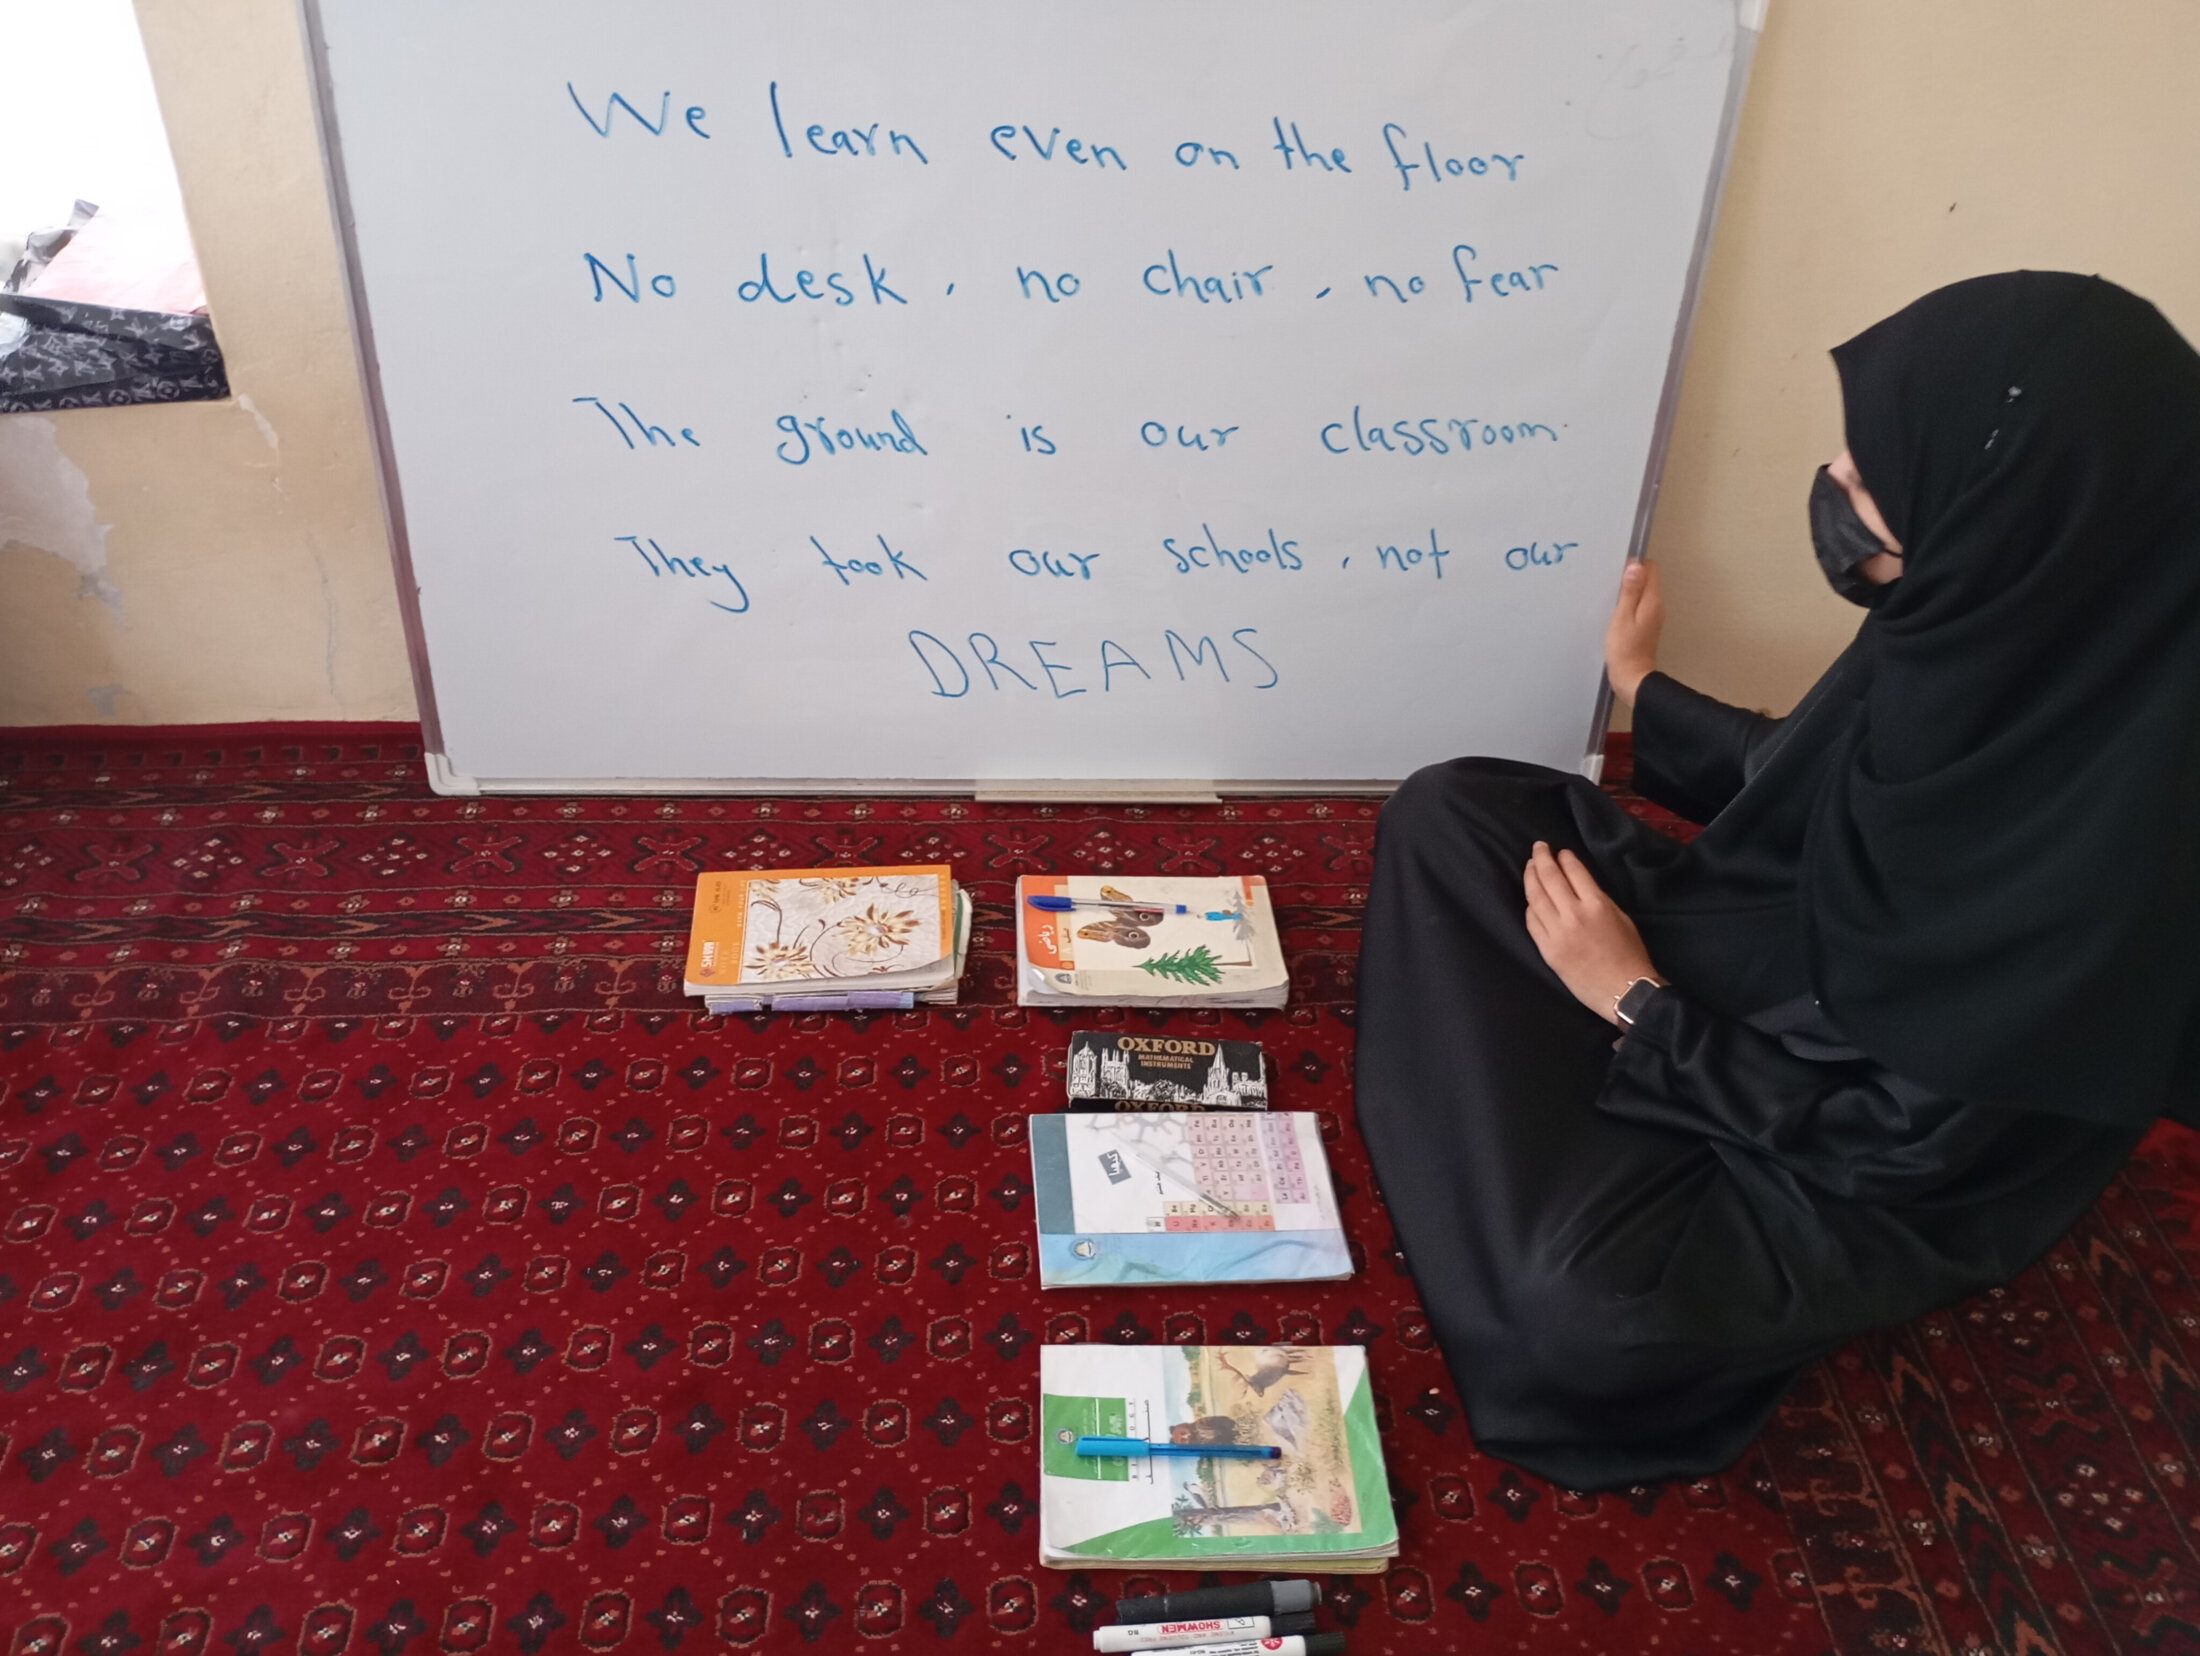 We learn even on the floor
No desk, no chair, no fear
The ground is our classroom.
They took our schools, not our
DREAMS
SMM
ریاضی
OXFORD
MATHEMATICAL
INSTRUMENTS
OXFORD
کیمیا
SHOWMEN